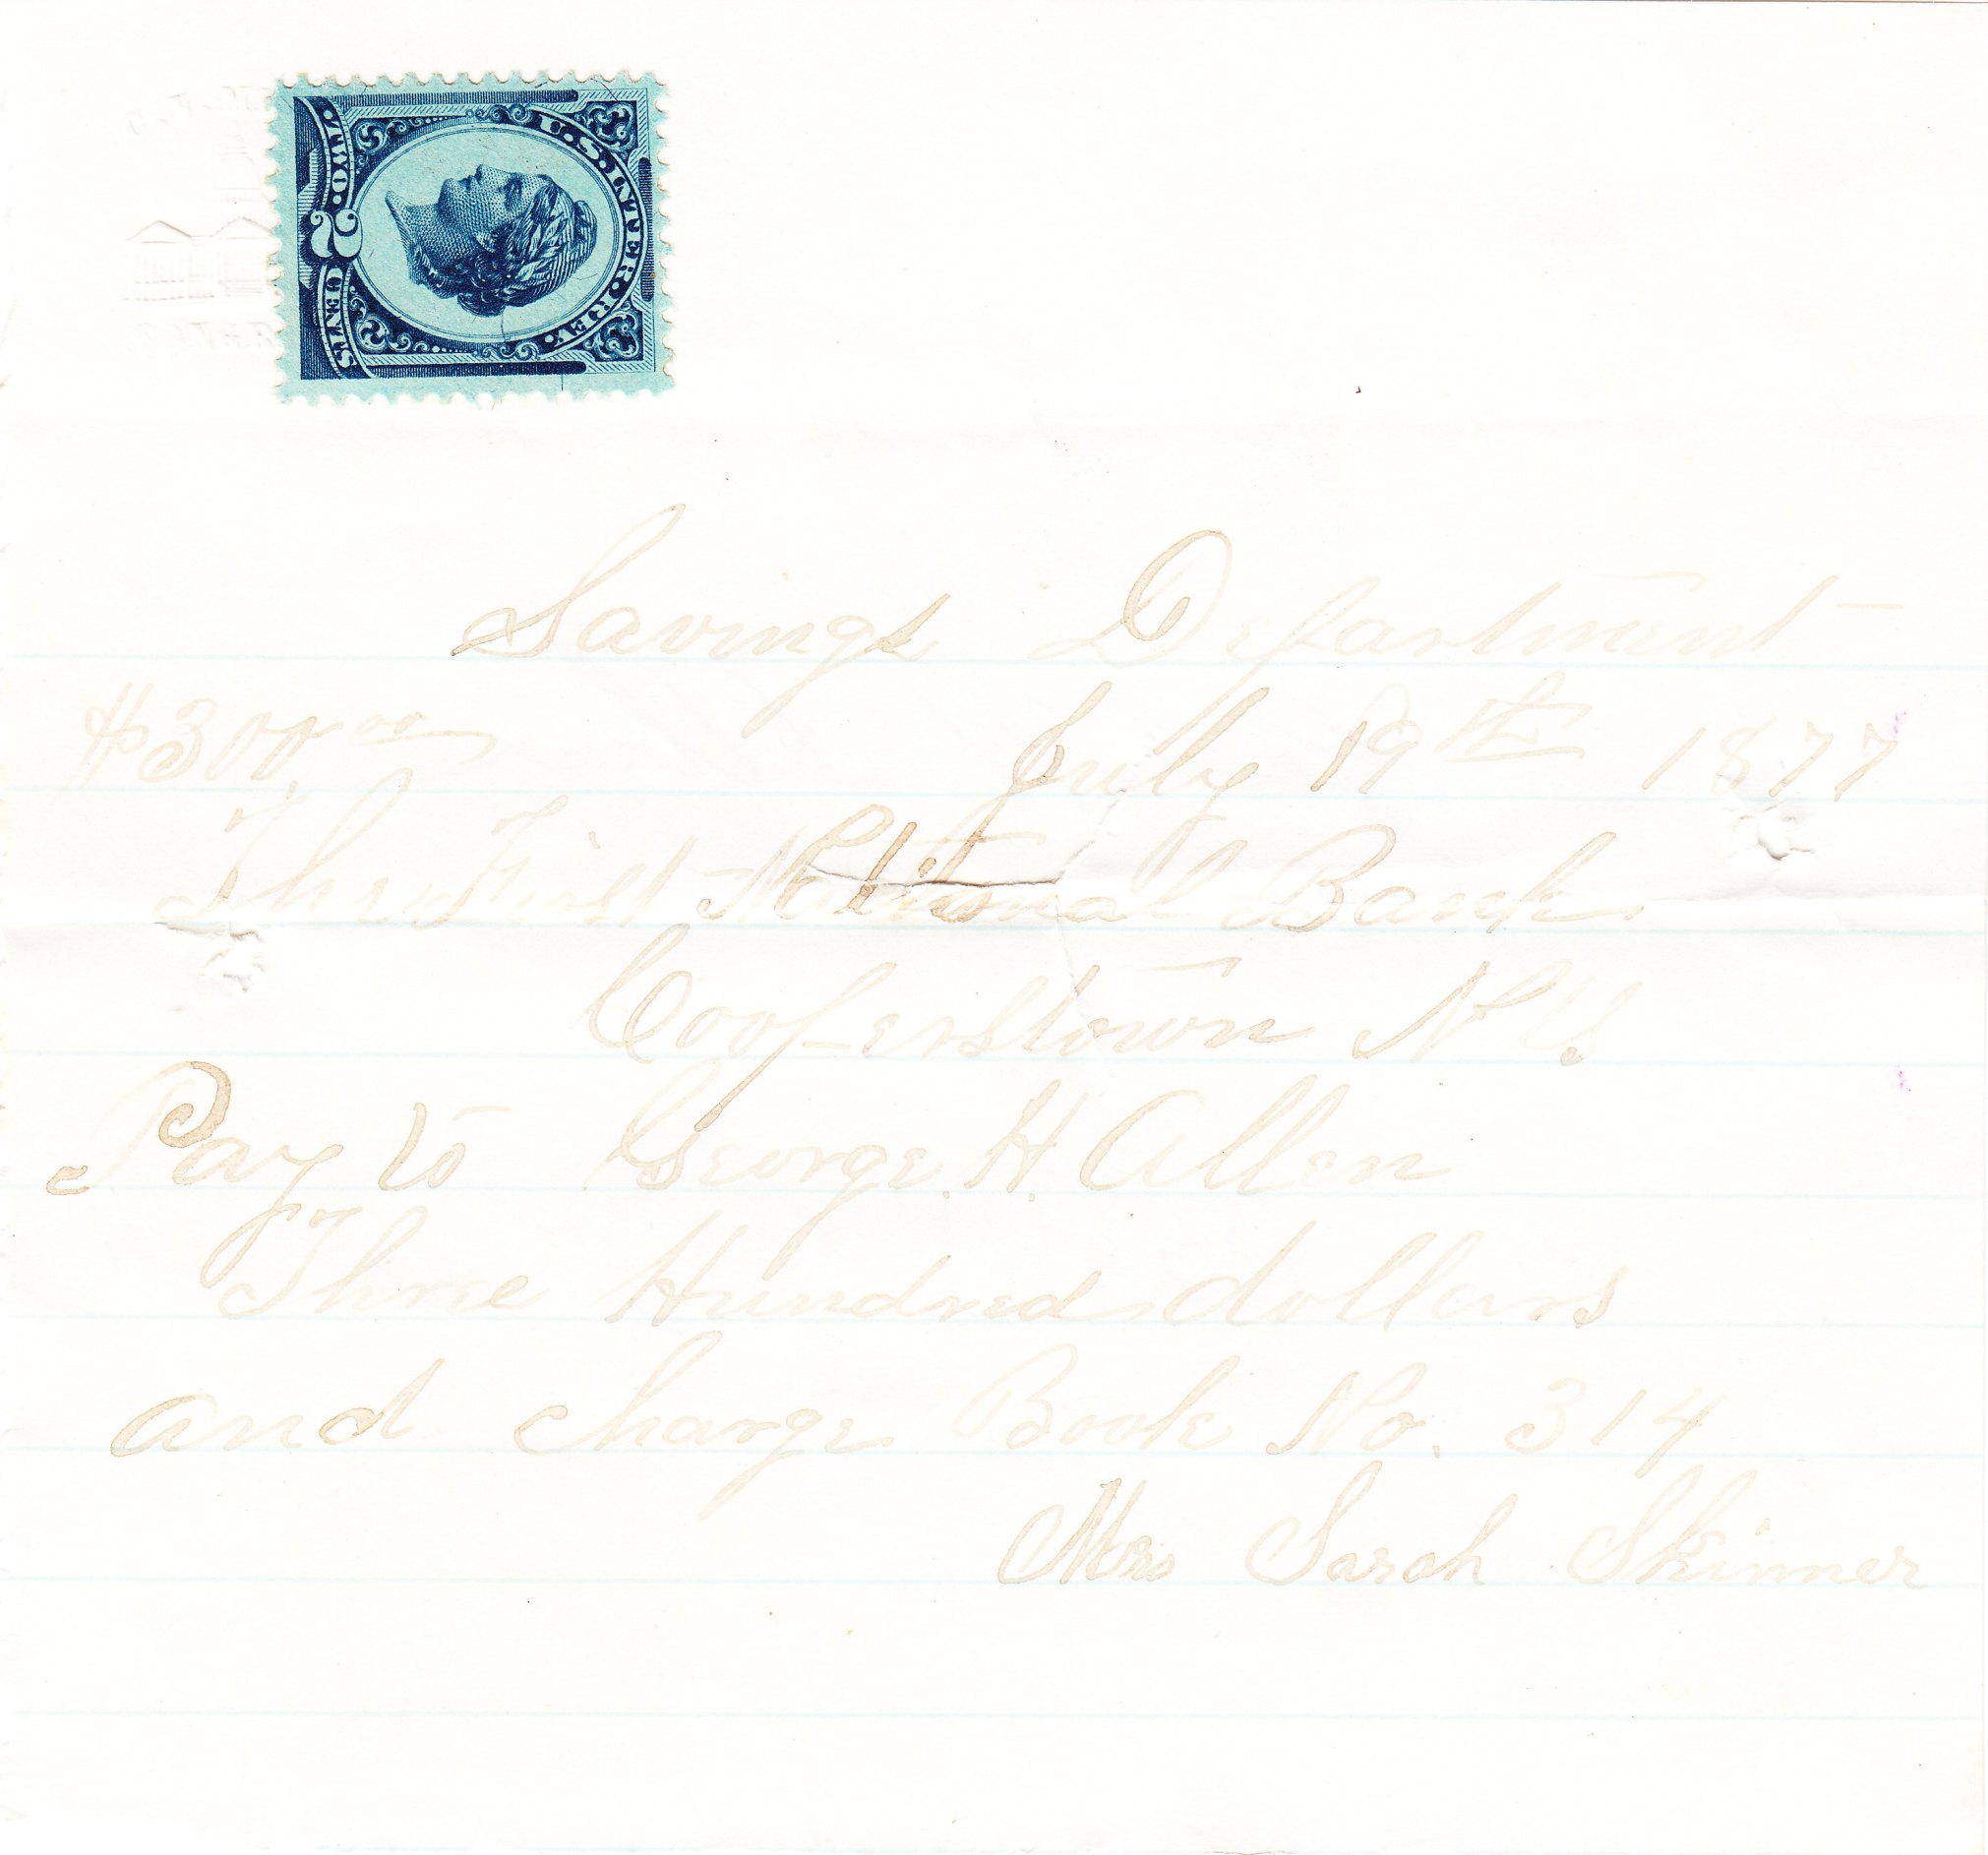 U.S. INTER. REV.
TWO 2 CENTS
Savings Department
$300 00 July 19th 1877
The First National Bank
Cooperstown N Y
Pay to George. H. Allen
Three Hundred dollars
and charge Book No. 314
Mrs Sarah Skinner